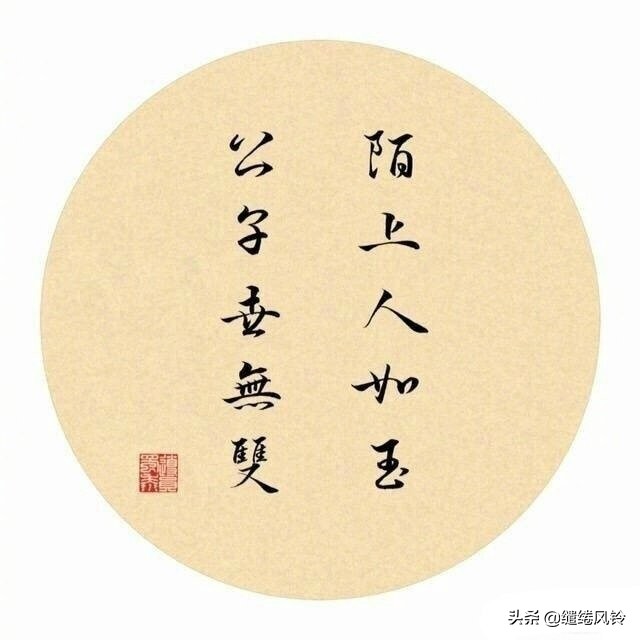 陌上人如玉
公子世無雙
头条 @缱绻风铃